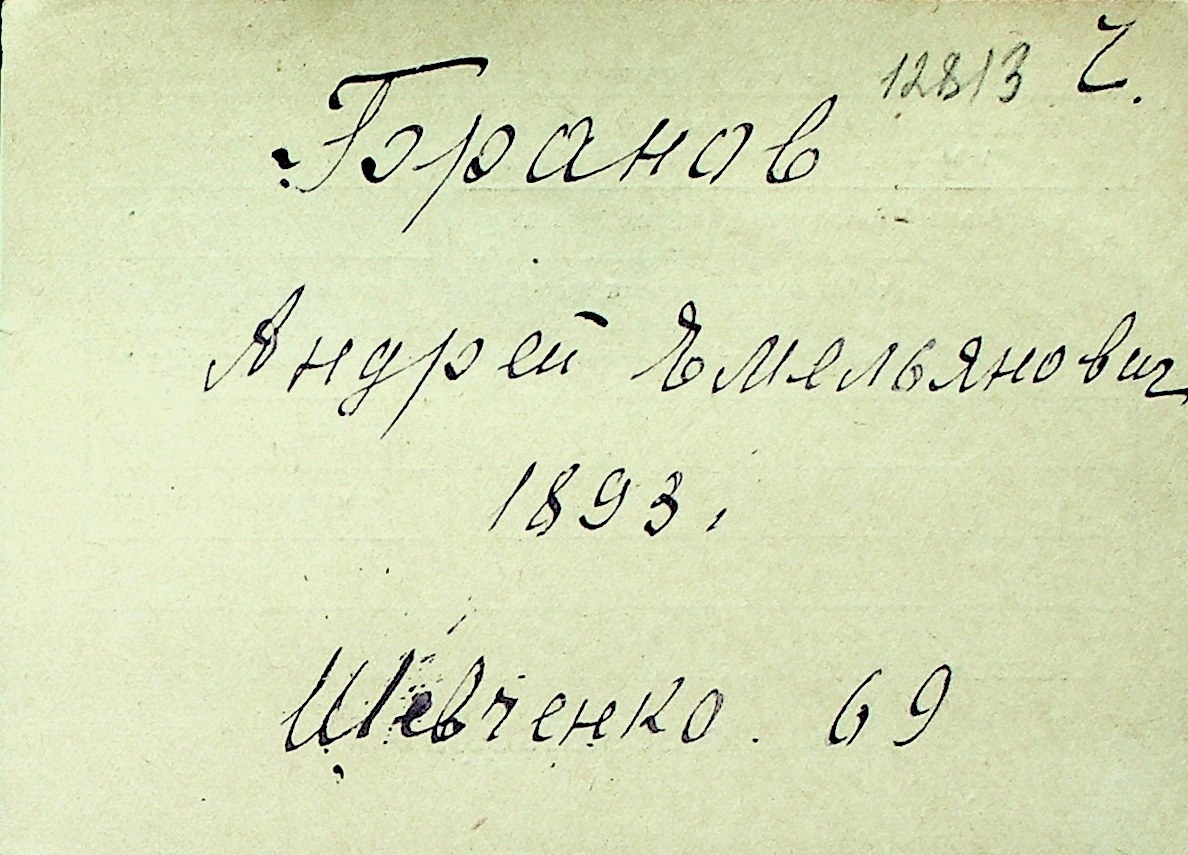 12813 Ч.
Бранов
Андрей Емельянович
1893,
Шевченко. 69